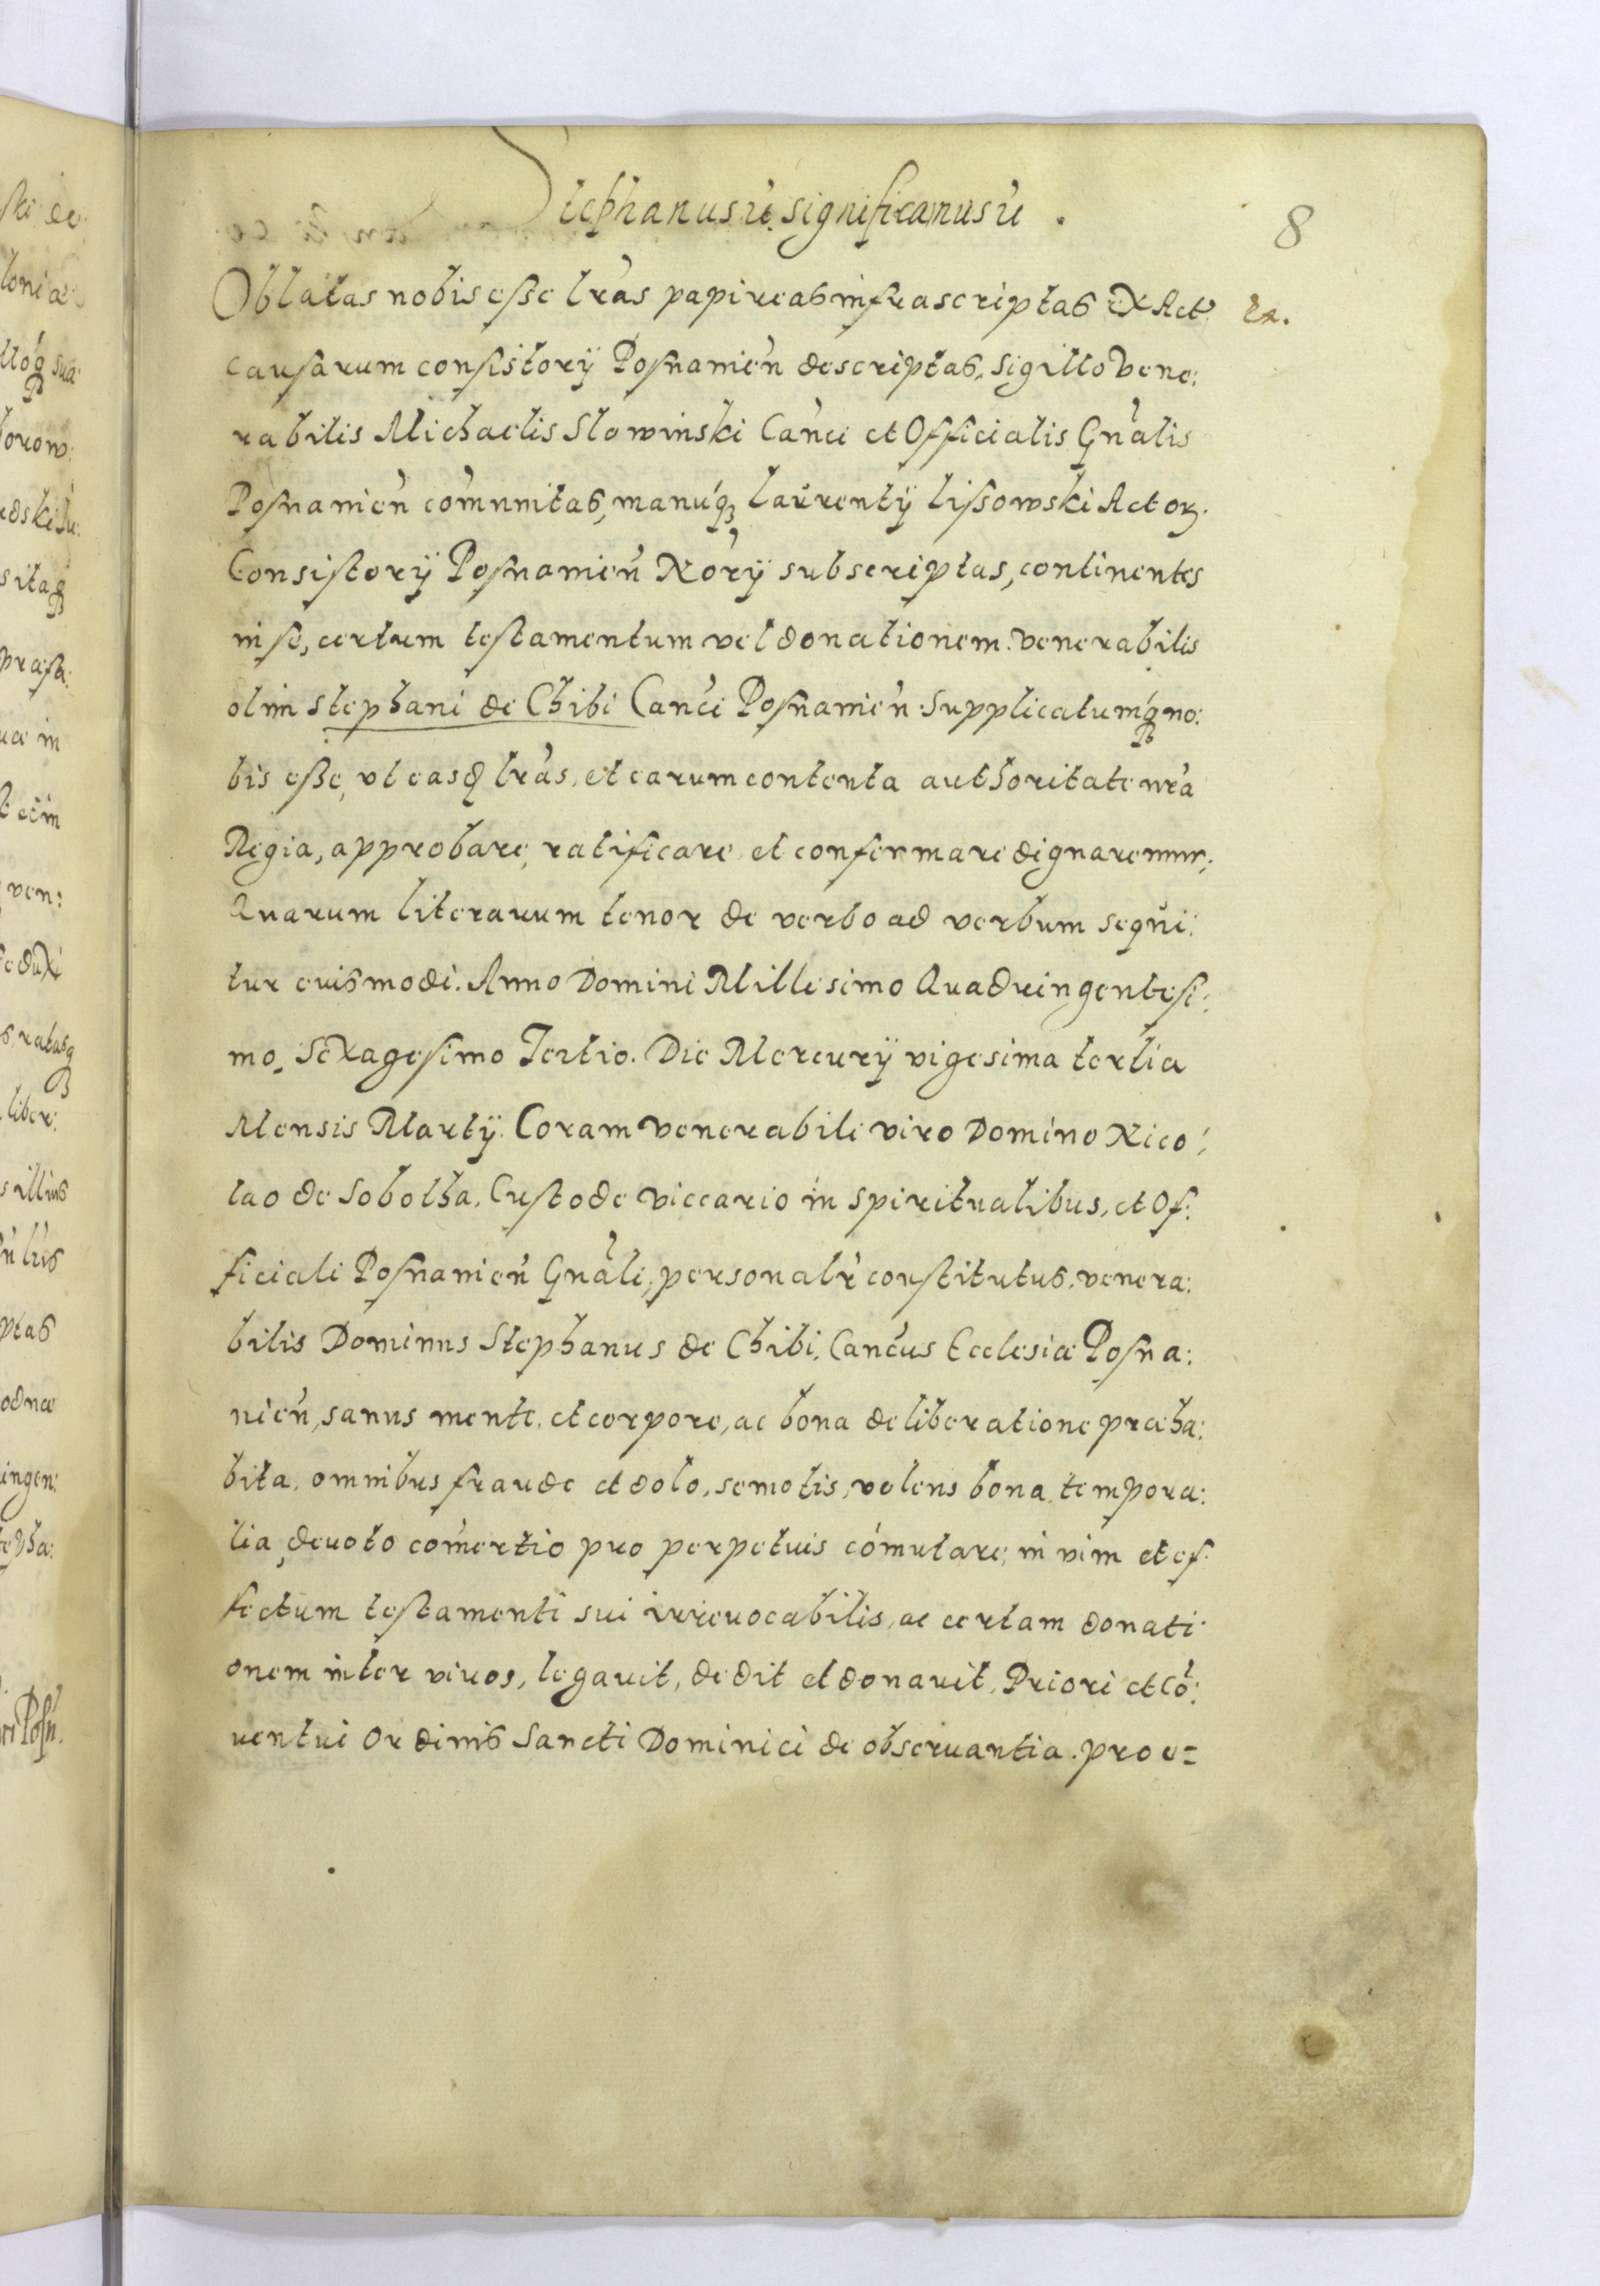 Stephanus etc. significamus etc.
8
Oblatas nobis esse lras papireas infrascriptas ex Act
causarum consistorÿ Posnanien descriptas, sigillo Vene:
rabilis Michaelis Slowinski Canci et Officialis Gnalis
Posnanien comunitas, manuq3 laurentÿ lissowski Actor.
Consistorÿ Posnanien Norÿ subscriptas, continentes
in se, certum testamentum vel donationem venerabilis
olim Stephani de Chibi Canci Posnanien Supplicatumq no:
bis esse, vt easd lras, et earum contenta authoritate nra
Regia, approbare, ratificare et confirmare dignaremur,
Quarum literarum tenor de verbo ad verbum sequi:
tur euismodi. Anno Domini Millesimo Quadringentesi:
mo, Sexagesimo Tertio. Die Mercurÿ vigesima tertia
Mensis Martÿ. Coram venerabile viro Domino Nico:
lao de Sobotha. Custode viccario in Spiritualibus, et Of:
ficiali Posnanien Gnali, personalr constitutus, venera:
bilis Dominus Stephanus de Chibi, Cancus Ecclesiæ Posna:
nien, sanus mente, et corpore, ac bona deliberatione præha:
bita, omnibus fraude et dolo, semotis, volens bona tempora:
lia, deuoto comertio pro perpetuis comutare, in vim et ef:
fectum testamenti sui irreuocabilis, ac certam donati:
onem inter viuos, legauit, dedit et donauit, Priori et Co:
uentui Ordinis Sancti Dominici de obseruantia. pro e=